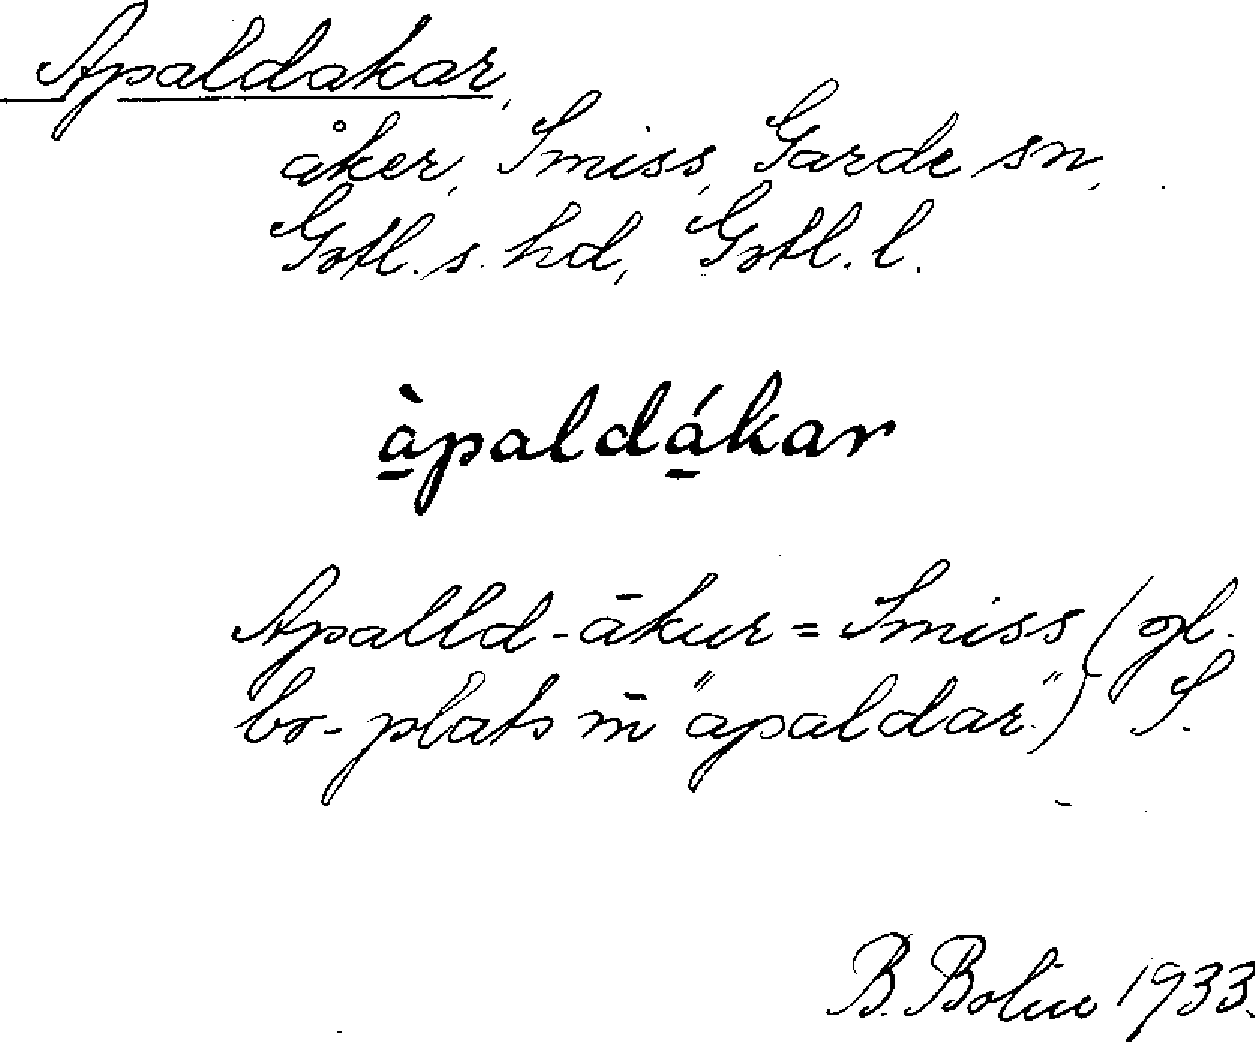 Apaldakar,
åker, Smiss, Garde sn,
Gotl. s. hd, Gotl. l.
à̱paldá̱kar
Apalld-ākur = Smiss (gl.
bo-plats m̄ "apaldar".) S.
B. Bolin 1933.